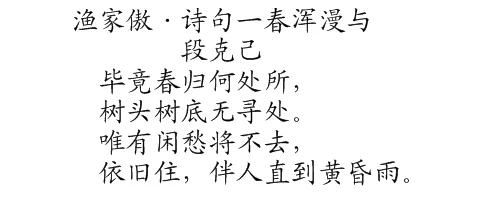 渔家傲·诗句一春浑漫与
段克己
毕竟春归何处所，
树头树底无寻处。
唯有闲愁将不去，
依旧住，伴人直到黄昏雨。